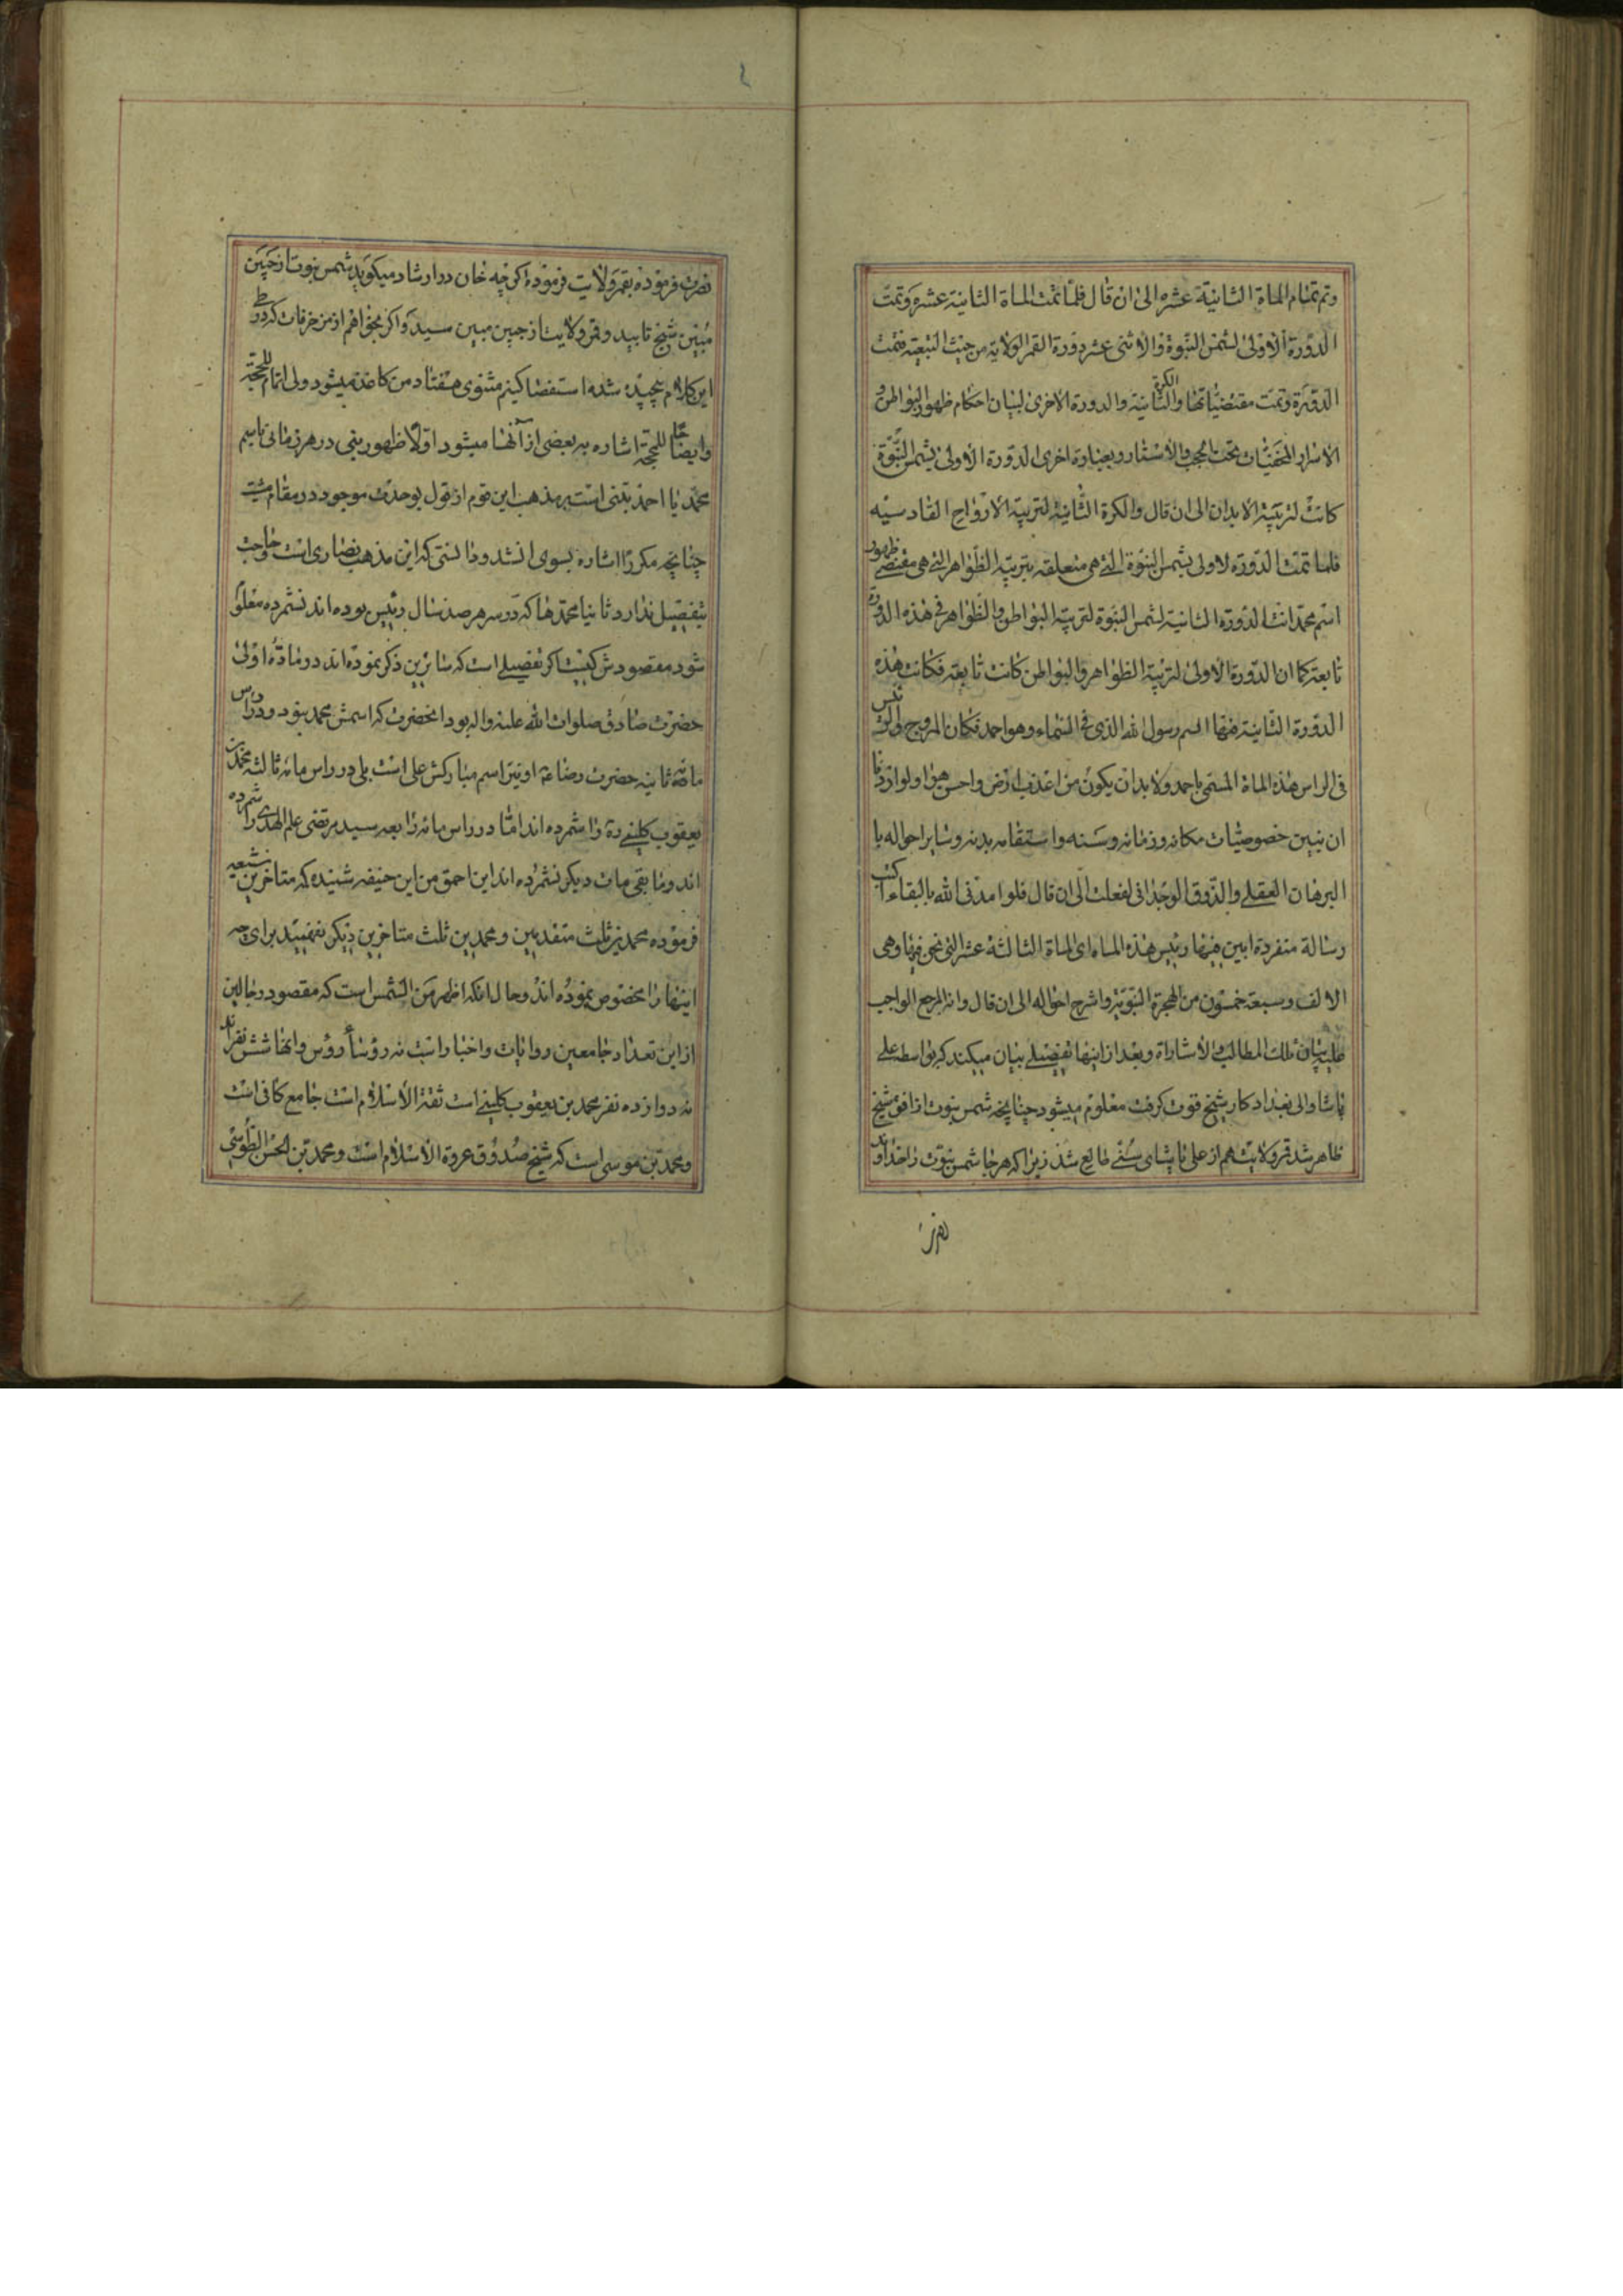 وتم تمام الماة الثانیة عشره الی ان قال فلما تمت الماة الثانیة عشره وتمت
الدورة الاولی لشمس النبوة والاثنی عشر دورة القمر الولایة من حیث التبعیة فتمت
الدورة وتمت مقتضیاتها والکرة الثانیة والدورة الاخری لبیان احکام ظهور البواطن و
الاسرار المخفیات تحت الحجب والاستار وبعبارة اخری الدورة الاولی لشمس النبوة
کانت لتربیة الابدان الی ان قال والکرة الثانیة لتربیة الارواح القادسیه
فلما تمت الدورة الاولی لشمس النبوة التی هی متعلقه بتربیة الظواهر التی هی مقتضی ظهور
اسم محمد اتت الدورة الثانیة لشمس النبوة لتربیة البواطن والظواهر فی هذه الدورة
تابعة کما ان الدورة الاولی لتربیة الظواهر والبواطن کانت تابعة فکانت هذه
الدورة الثانیة فیها اسم رسول الله الذی فی السماء وهو احمد فکان المروج والرئیس
فی الراس هذه الماة المسمی باحمد ولا بد ان یکون من اعذب ارض واحسن هواء ولو اردنا
ان نبین خصوصیات مکانه وزمانه وسنه واستقامه بدنه وسایر احواله با
البرهان العقلی والذوق الوجدانی لفعلت الی ان قال فلو امدنی الله بالبقاء اکتب
رسالة منفردة ابین فیها رئیس هذه الماه ای الماة الثالثة عشر التی نحن فیها وهی
الالف وسبعة خمسون من الهجرة النبویة واشرح احواله الی ان قال وانه المرجع الواجب
علیه بیان تلک المطالب والاشاراة وبعد از اینها تفصیلی بیان میکند که بواسطه علی
پاشا والی بغداد کار شیخ قوت کرفت معلوم میشود چنانچه شمس نبوت از افق شیخ
ظاهر شد قمر ولایت هم از علی پاشای سنی طالع شد زیرا که هر جا شمس نبوت را خداوند
نصرت فرموده بقمر ولایت فرموده اکرچه خان در ارشاد میکوید شمس نبوت از جبین
مبین شیخ تابید وقمر ولایت از جبین مبین سید واکر بخواهم از مزخرفات که در طی
این کلام پیچیده شده استقصا کنیم مثنوی هفتاد من کاغذ میشود ولی اتمام للحجة
وایضاحا للمحجة اشاره به بعضی از آنها میشود اولا ظهور نبی در هر زمانی باسم
محمد یا احمد مبتنی است بر مذهب این قوم از قول بوحدت موجود در مقام مشیت
چنانچه مکررا اشاره بسوی ان شد ودانستی که این مذهب نصاری است وحاجت
بتفصیل ندارد ثانیا محمدها که در سر هر صد سال رئیس بوده اند نشمرده معلوم
شود مقصودش کیست اکر تفصیلی است که سایرین ذکر نموده اند در ماة اولی
حضرت صادق صلوات الله علیه واله بود انحضرت که اسمش محمد نبود ودر راس
مائة ثانیه حضرت رضا ع او نیز اسم مبارکش علی است بلی در راس مائه ثالثه محمد بن
یعقوب کلینی ره را شمرده اند اما در راس مائه رابعه سید مرتضی علم الهدی را شمرده
اند وما بقی مات دیکر نشمرده اند این احمق من ابن حنیفه شنیده که متاخرین شیعه
فرموده محمدین ثلث متقدمین ومحمدین ثلث متاخرین دیکر نفهمیده برای چه
اینها را مخصوص نموده اند وحال انکه اظهر من الشمس است که مقصود رجالیین
از این تعداد جامعین روایات واخبار است نه رؤسا رؤس وانها شش نفراند
نه دوازده نفر محمد بن یعقوب کلینی است ثقة الاسلام است جامع کافی است
ومحمد بن موسی است که شیخ صدوق عروة الاسلام است ومحمد بن الحسن الطوسی
نصرت